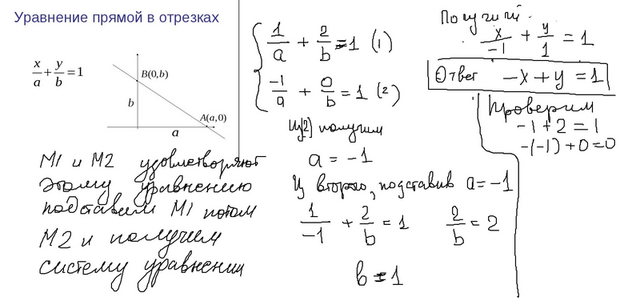 Уравнение прямой в отрезках
x/a + y/b = 1
B(0,b)
b
A(a,0)
a
М1 и М2 удовлетворяют
этому уравнению
подставим М1 потом
М2 и получим
систему уравнении
1/a + 2/b = 1 (1)
-1/a + 0/b = 1 (2)
Из 2) получим
a = -1
Из второго, подставив a = -1
1/-1 + 2/b = 1 2/b = 2
b = 1
Получим.
x/-1 + y/1 = 1
Ответ -x + y = 1
Проверим
-1 + 2 = 1
-(-1) + 0 = 0